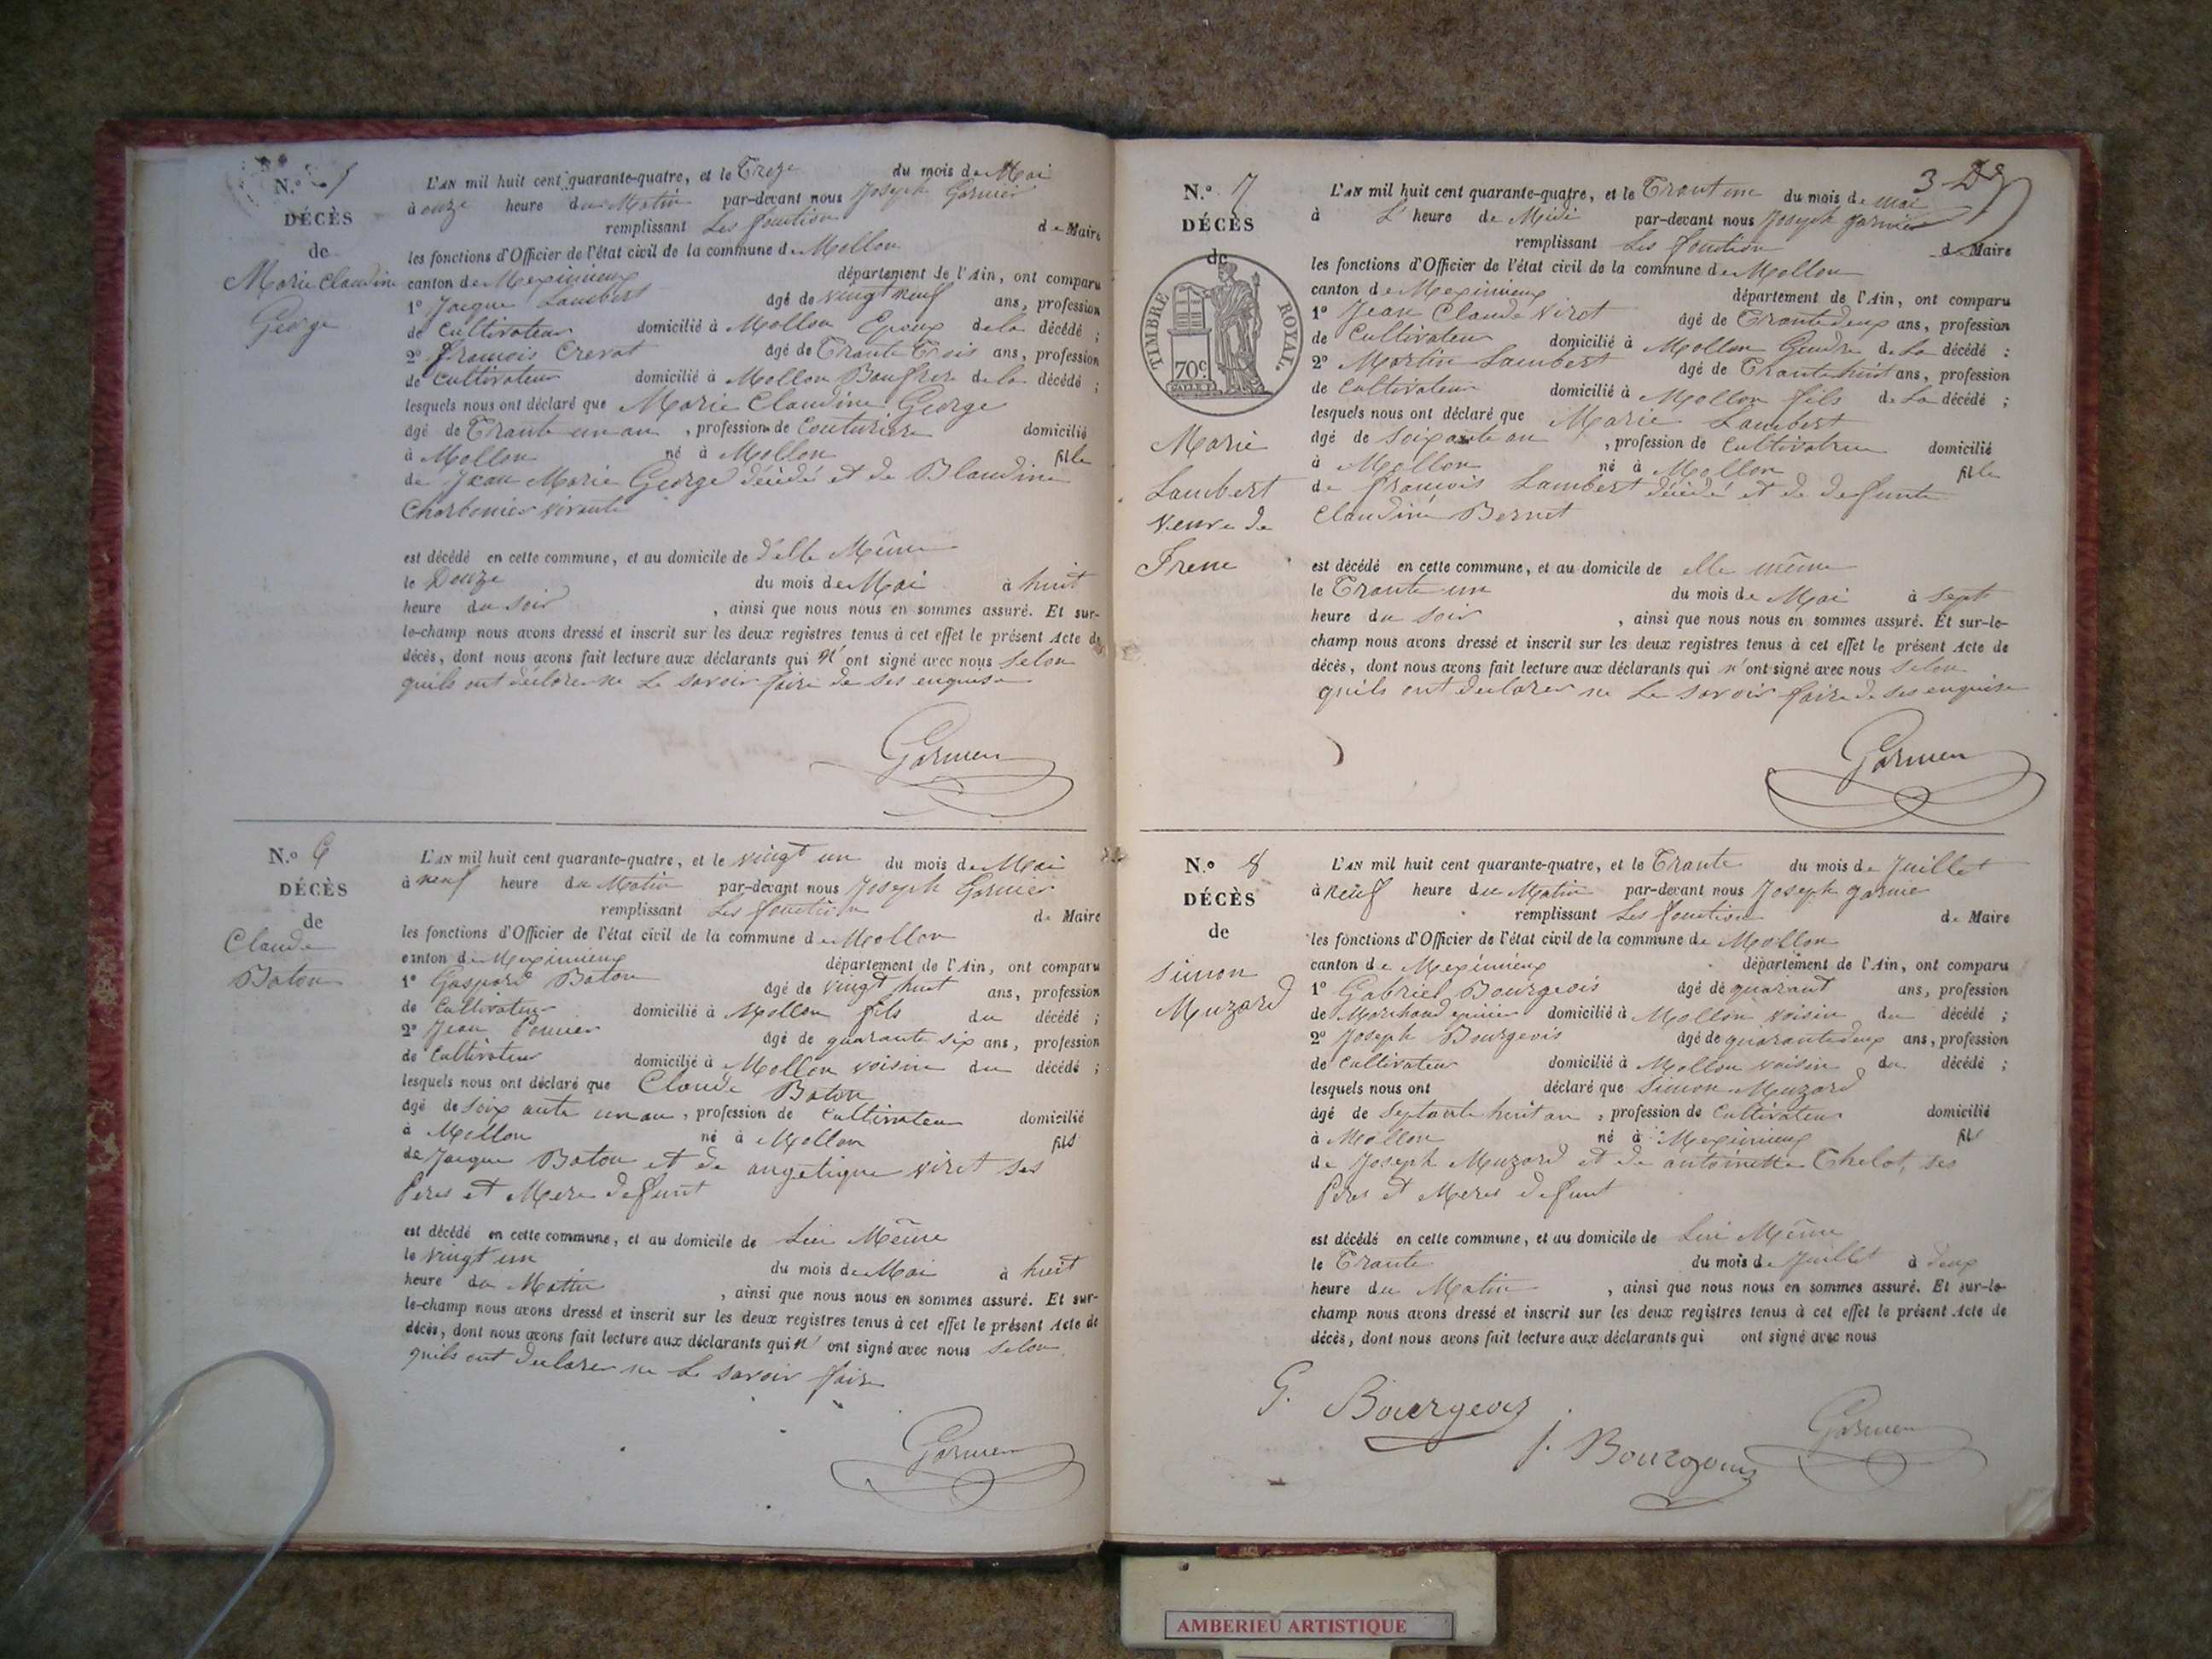 N.° 5
DÉCÈS
de
Marie Claudine
George
L'AN mil huit cent quarante-quatre, et le Treze du mois de Mai
à onze heure du Matin par-devant nous Joseph Garnier
remplissant Les fonction de Maire
les fonctions d'Officier de l'état civil de la commune de Mollon
canton de Meximieux département de l'Ain, ont comparu
1° Jacque Lambert âgé de vingt neuf ans, profession
de Cultivateur domicilié à Mollon Epoux de la décédé ;
2° francois Crevat âgé de Trante Trois ans, profession
de Cultivateur domicilié à Mollon Baufrere de la décédé ;
lesquels nous ont déclaré que Marie Claudine George
âgé de Trante un an , profession de Couturiere domicilié
à Mollon né à Mollon fille
de Jean Marie George décédé et de Blaudine
Charbonier vivante
est décédé en cette commune, et au domicile de d'elle Même
le Douze du mois de Mai à huit
heure du Soir , ainsi que nous nous en sommes assuré. Et sur-
le-champ nous avons dressé et inscrit sur les deux registres tenus à cet effet le présent Acte de
décès, dont nous avons fait lecture aux déclarants qui n' ont signé avec nous Selon
quils ont declarer ne Le savoir faire de ses enquise
Garnier
N.° 6
DÉCÈS
de
Claude
Baton
L'AN mil huit cent quarante-quatre, et le vingt un du mois de Mai
à neuf heure du Matin par-devant nous Joseph Garnier
remplissant Les fonction de Maire
les fonctions d'Officier de l'état civil de la commune de Mollon
canton de Meximieux département de l'Ain, ont comparu
1° Gaspard Baton âgé de vingt huit ans, profession
de Cultivateur domicilié à Mollon fils du décédé ;
2° Jean âgé de quarante six ans, profession
de Cultivateur domicilié à Mollon voisin du décédé ;
lesquels nous ont déclaré que Claude Baton
âgé de Soix ante un an , profession de Cultivateur domicilié
à Mollon né à Mollon fils
de Jacque Baton et de angelique viret ses
Peres et Mere defunt
est décédé en cette commune, et au domicile de Lui Même
le vingt un du mois de Mai à huit
heure du Matin , ainsi que nous nous en sommes assuré. Et sur-
le-champ nous avons dressé et inscrit sur les deux registres tenus à cet effet le présent Acte de
décès, dont nous avons fait lecture aux déclarants qui n' ont signé avec nous Selon
quils ont declarer ne Le savoir faire
Garnier
3
N.° 7
DÉCÈS
de
TIMBRE ROYAL.
70c
Marie
Lambert
veuve de
Irene
L'AN mil huit cent quarante-quatre, et le Trant un du mois de mai
à L' heure de Midi par-devant nous Joseph garnier
remplissant Les fonction de Maire
les fonctions d'Officier de l'état civil de la commune de Mollon
canton de Meximieux département de l'Ain, ont comparu
1° Jean Claude Viret âgé de Trante deux ans, profession
de Cultivateur domicilié à Mollon Gendre de La décédé ;
2° Martin Lambert âgé de Trante huit ans, profession
de Cultivateur domicilié à Mollon fils de La décédé ;
lesquels nous ont déclaré que Marie Lambert
âgé de Soixante an , profession de Cultivatrice domicilié
à Mollon né à Mollon fille
de francois Lambert décédé et de defunte
Claudine Bernet
est décédé en cette commune, et au domicile de elle même
le Trante un du mois de Mai à Sept
heure du Soir , ainsi que nous nous en sommes assuré. Et sur-le-
champ nous avons dressé et inscrit sur les deux registres tenus à cet effet le présent Acte de
décès, dont nous avons fait lecture aux déclarants qui n' ont signé avec nous Selon
quils ont declarer ne Le savoir faire de ses enquise
Garnier
N.° 8
DÉCÈS
de
Simon
Muzard
L'AN mil huit cent quarante-quatre, et le Trante du mois de Juillet
à neuf heure du Matin par-devant nous Joseph garnier
remplissant Les fonction de Maire
les fonctions d'Officier de l'état civil de la commune de Mollon
canton de Meximieux département de l'Ain, ont comparu
1° Gabriel Bourgeois âgé de quarant ans, profession
de Marchand epicier domicilié à Mollon voisin du décédé ;
2° Joseph Bourgeois âgé de quarante deux ans, profession
de Cultivateur domicilié à Mollon voisin du décédé ;
lesquels nous ont déclaré que Simon Muzard
âgé de Septante huit an , profession de Cultivateur domicilié
à Mollon né à Meximieux fils
de Joseph Muzard et de antoinette Chelot, ses
Peres et Meres defunt
est décédé en cette commune, et au domicile de Lui Même
le Trante du mois de Juillet à deux
heure du Matin , ainsi que nous nous en sommes assuré. Et sur-le-
champ nous avons dressé et inscrit sur les deux registres tenus à cet effet le présent Acte de
décès, dont nous avons fait lecture aux déclarants qui ont signé avec nous
G. Bourgeois
J. Bourgois
Garnier
AMBERIEU ARTISTIQUE